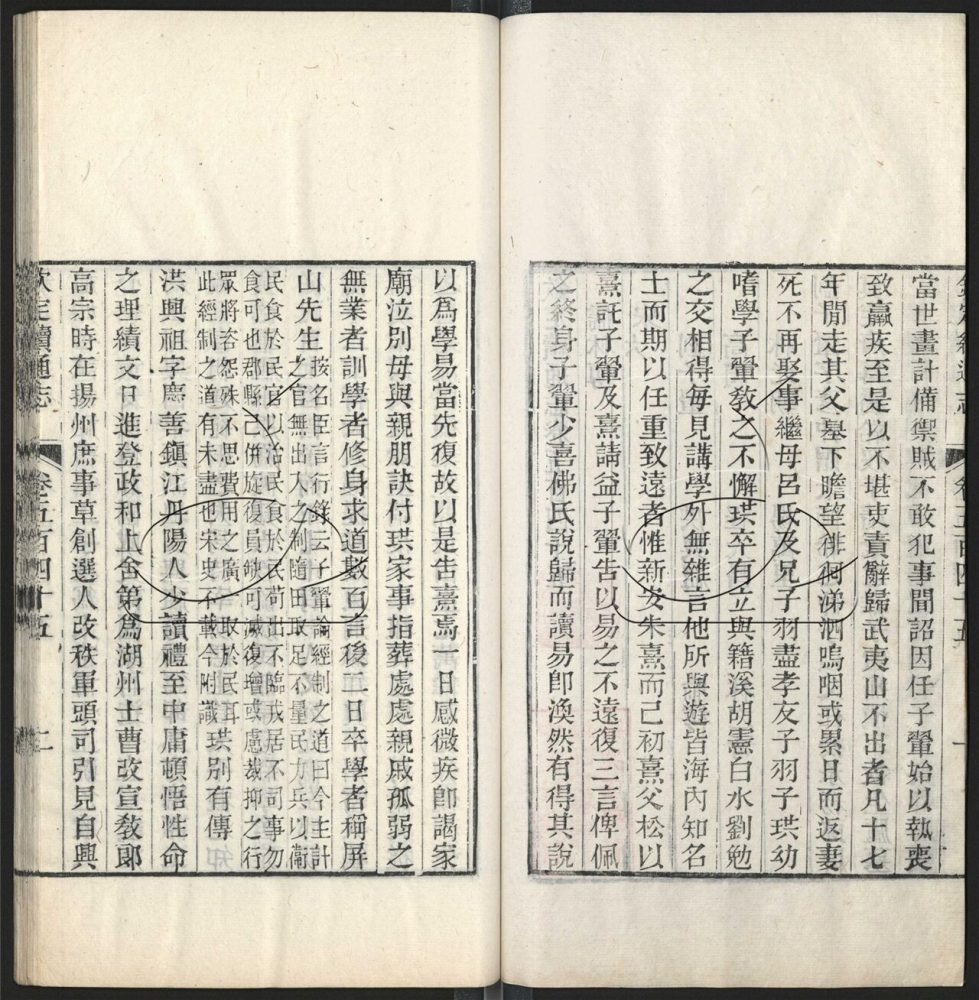 當世畫計備禦賊不敢犯事閒詔因任子翬始以執喪
致羸疾至是以不堪吏責辭歸武夷山不出者凡十七
年閒走其父墓下瞻望徘徊涕泗嗚咽或累日而返妻
死不再娶事繼母呂氏及兄子羽盡孝友子羽子珙幼
嗜學子翬教之不懈珙卒有立與籍溪胡憲白水劉勉
之交相得每見講學外無雜言他所與遊皆海內知名
士而期以任重致遠者惟新安朱熹而已初熹父松以
熹託子翬及熹請益子翬告以易之不遠復三言俾佩
之終身子翬少喜佛氏說歸而讀易卽渙然有得其說
以爲學易當先復故以是告熹焉一日感微疾卽謁家
廟泣別母與親朋訣付珙家事指葬處處親戚孤弱之
無業者訓學者修身求道數百言後二日卒學者稱屏
山先生按名臣言行錄云子翬論經制之道曰今主計
之官無出入之制隨田取足不量民力兵以衛
民食於民官以治民食於民苟出不臨戎居不司事勿
食可也郡縣已併旋復員缺可減復增或慮裁抑之行
眾將咨怨殊不思費用之廣取於民耳
此經制之道有未盡也宋史不載今附識珙別有傳
洪興祖字慶善鎮江丹陽人少讀禮至中庸頓悟性命
之理績文日進登政和上舍第爲湖州士曹改宣教郎
高宗時在揚州庶事草創選人改秩軍頭司引見自興
欽定續通志 卷五百四十五